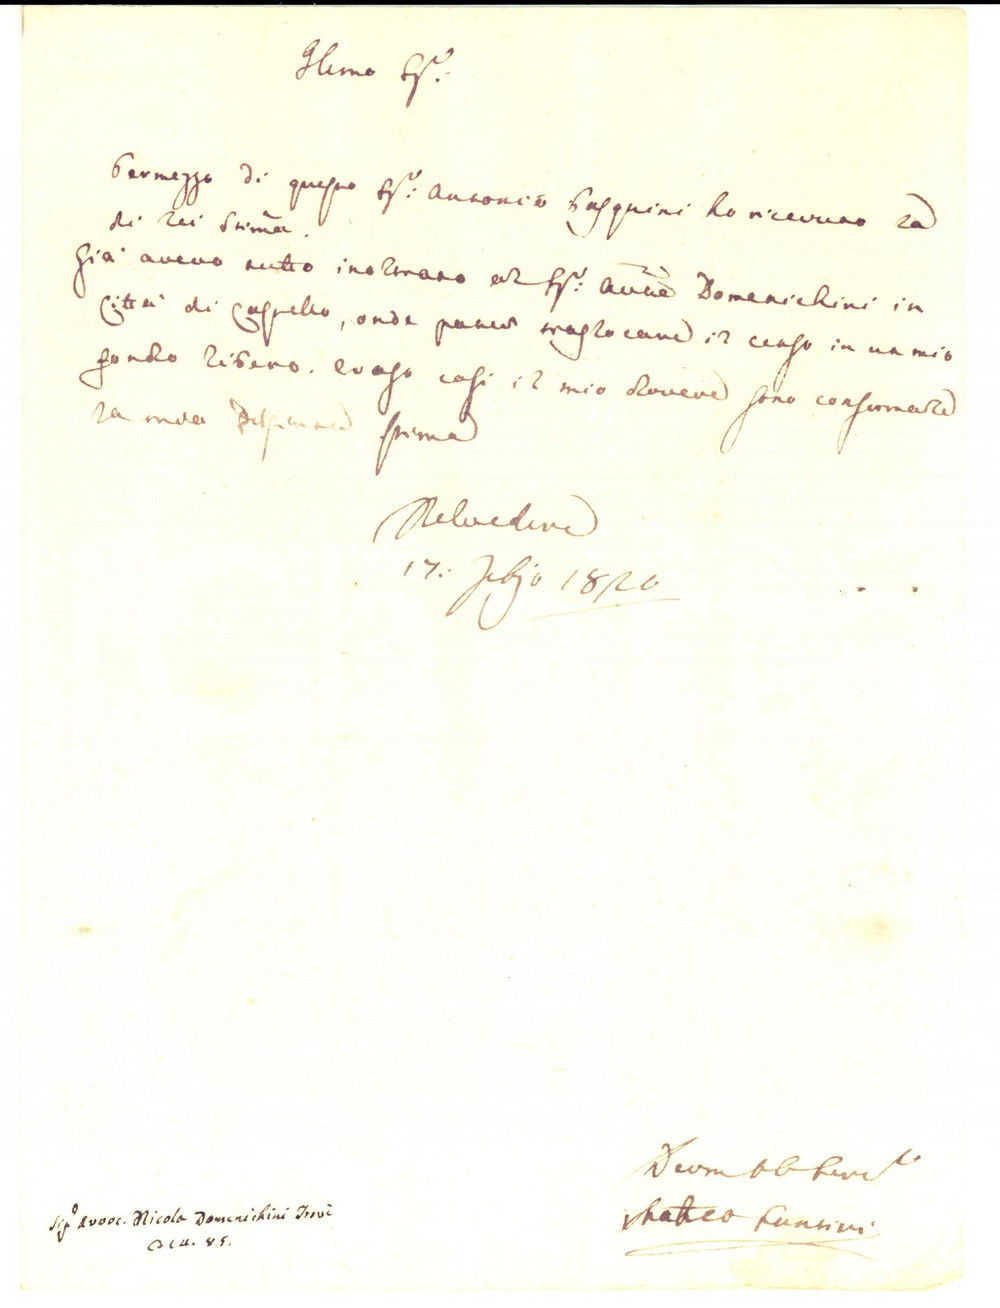 Illmo Sigr.
Permezzo di questo Sigr. Antonio Pasquini ho ricevuto la
di lei stima.
Già avevo tutto inoltrato al Sigr. Avvte Domenichini in
Città di Castello, onde poter traslocare il censo in un mio
fondo libero. Evaso così il mio dovere sono confermare
la mia stima
Belvedere
17: Febjo 1820
Devm Obb Serv
Matteo Santini
Sigr Avvoc. Nicola Domenichini